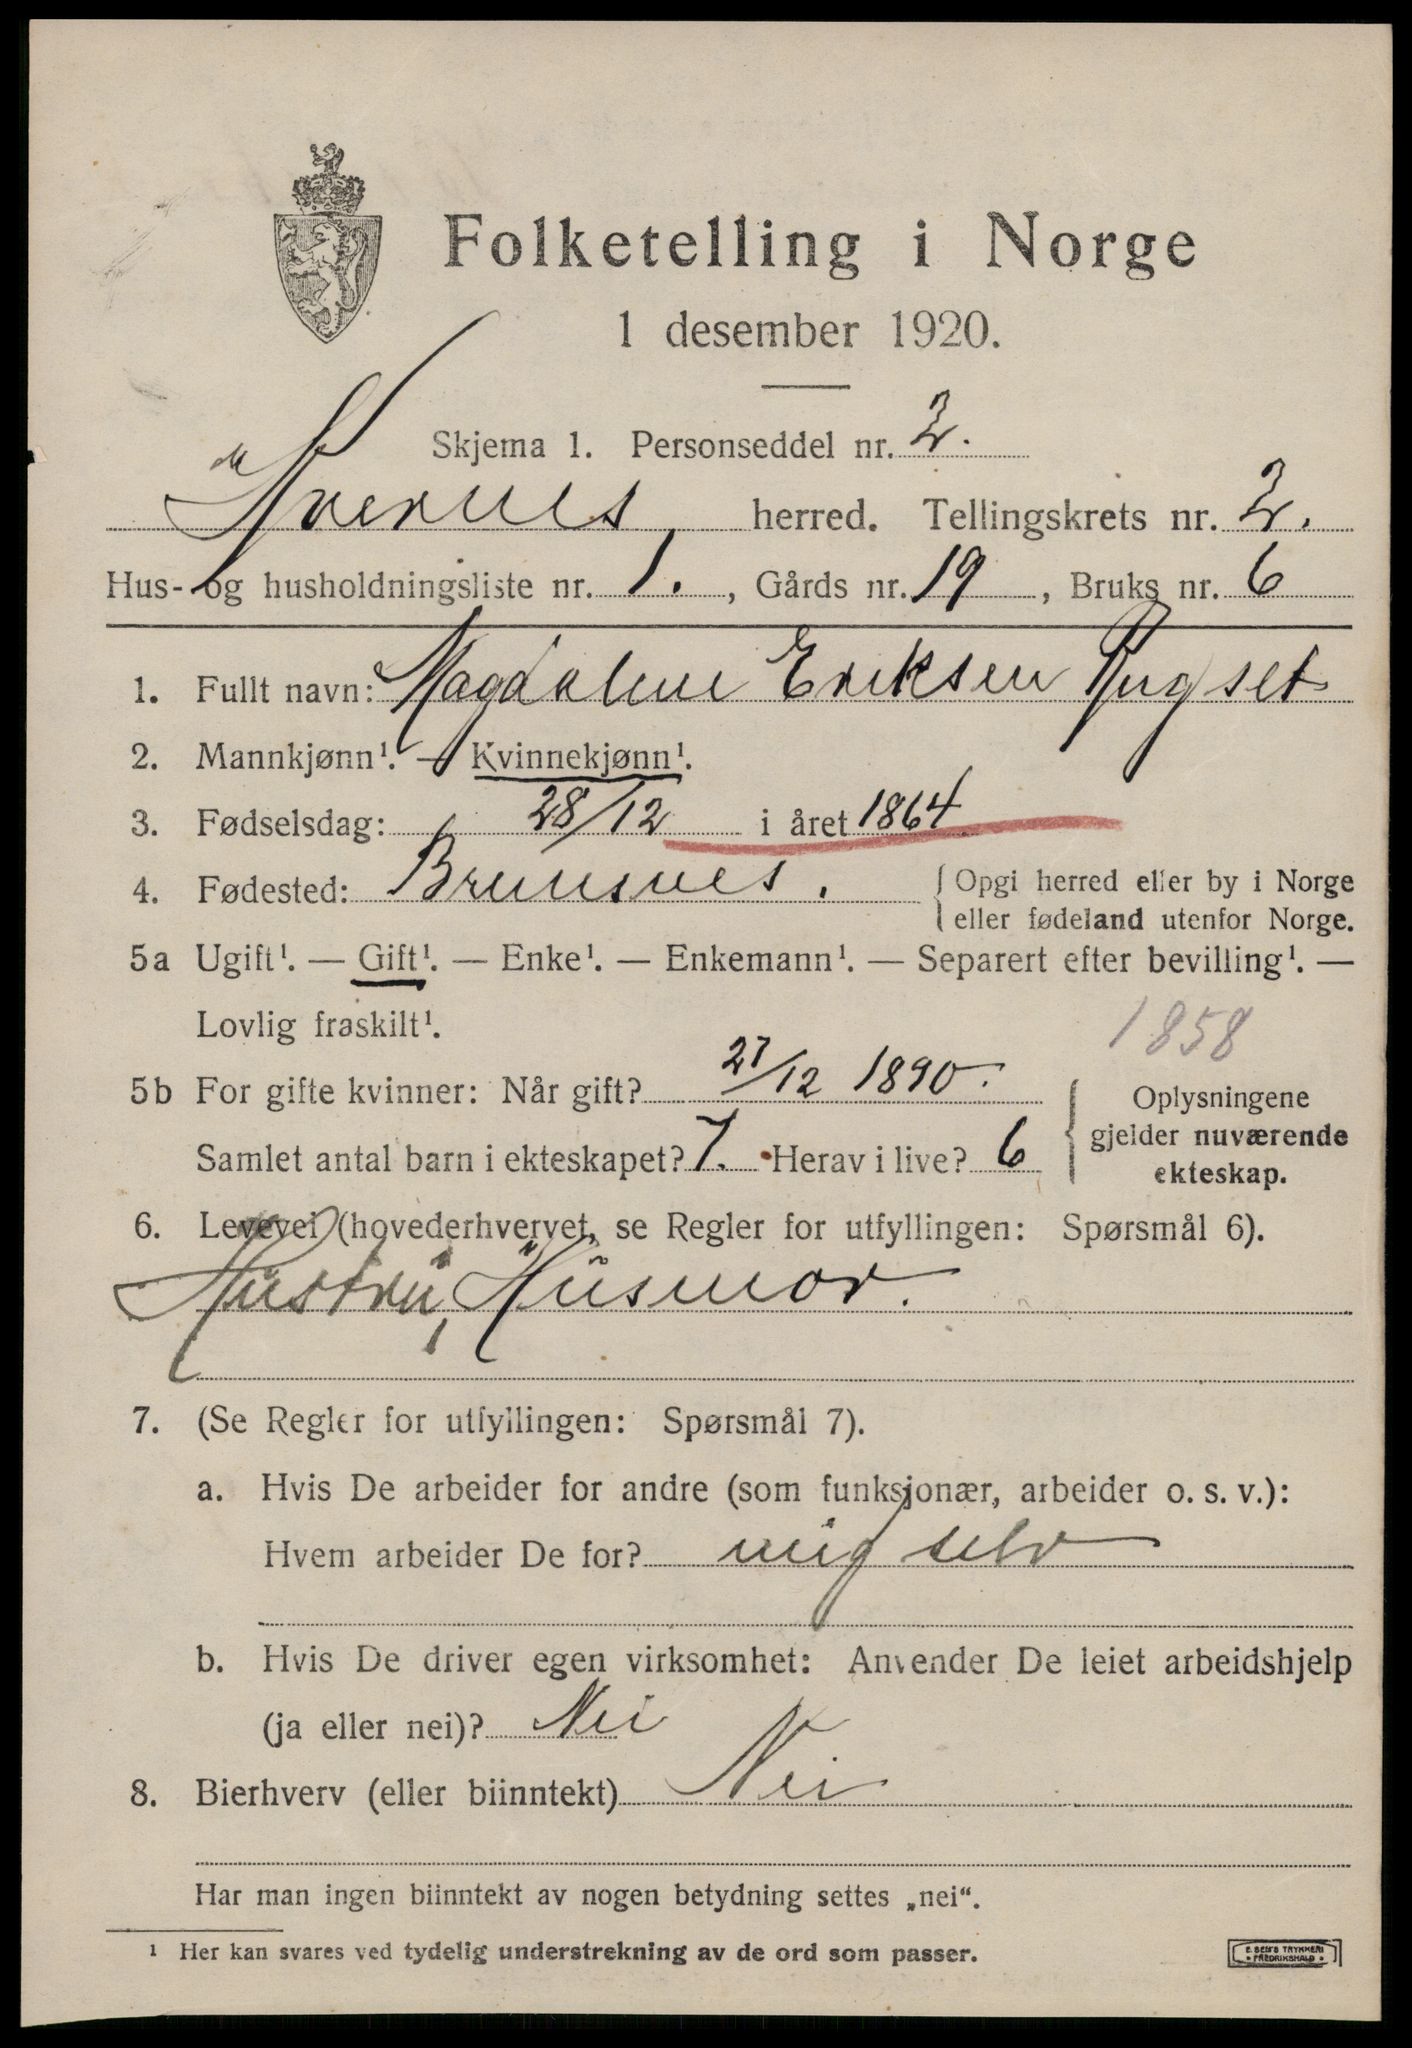 Folketelling i Norge
1 desember 1920.
Skjema 1. Personseddel nr. 2.
Kvernes, herred. Tellingskrets nr. 2.
Hus- og husholdningsliste nr. 1., Gårds nr. 19, Bruks nr. 6
1. Fullt navn: Magdalene Eriksen Rugset
2. Mannkjønn¹. — Kvinnekjønn¹.
3. Fødselsdag: 28/12 i året 1864.
4. Fødested: Bremsnes. { Opgi herred eller by i Norge
eller fødeland utenfor Norge.
5a Ugift¹. — Gift¹. — Enke¹. — Enkemann¹. — Separert efter bevilling¹. —
Lovlig fraskilt¹.
1858
5b For gifte kvinner: Når gift? 27/12 1890.
Samlet antal barn i ekteskapet? 7. Herav i live? 6
{ Oplysningene
gjelder nuværende
ekteskap.
6. Levevei (hovederhvervet, se Regler for utfyllingen: Spørsmål 6).
Hustru, Husmor.
7. (Se Regler for utfyllingen: Spørsmål 7).
a. Hvis De arbeider for andre (som funksjonær, arbeider o. s. v.):
Hvem arbeider De for? mig selv
b. Hvis De driver egen virksomhet: Anvender De leiet arbeidshjelp
(ja eller nei)? Nei
8. Bierhverv (eller biinntekt) Nei
Har man ingen biinntekt av nogen betydning settes „nei“.
¹ Her kan svares ved tydelig understrekning av de ord som passer.
E. SEM'S TRYKKERI
• FREDRIKSHALD •